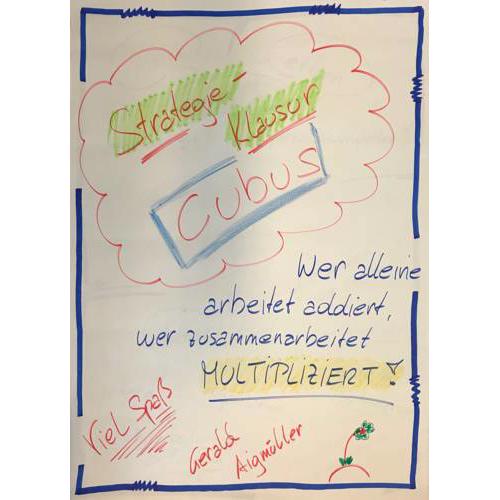 Strategie-
Klausur
Cubus
Wer alleine
arbeitet addiert,
wer zusammenarbeitet
MULTIPLIZIERT!
Viel Spaß
Gerald
Aigmüller